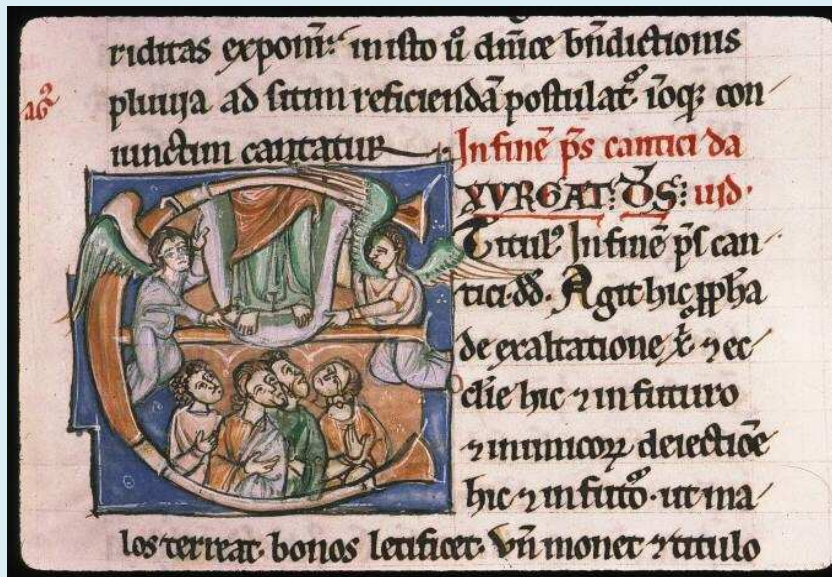 riditas exponit᷑: in isto ū dn̄ice bn̄dictionis
pluuia ad sitim reficiendā postulat᷑. ioq; con
iunctim cantatur
In finē ps̄ cantici da
XVRGAT: D̄S: uid·
Titul᷒ In finē ps̄ can
tici·dd̄. Agit hic ꝓph̄a
de exaltatione xp̄i ⁊ ec
clīe hic ⁊ in futuro
⁊ inimicoꝝ deiectiōe
hic ⁊ in futō·ut ma
los terreat·bonos letificet· Vn̄ monet ⁊ titulo